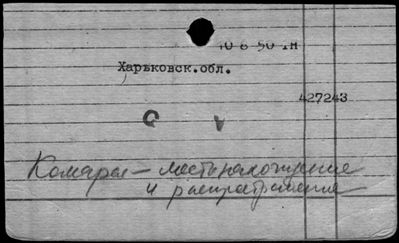 10 8 50 1H
Харьковск.обл.
427243
с v
Комары — местонахождение
и распространение